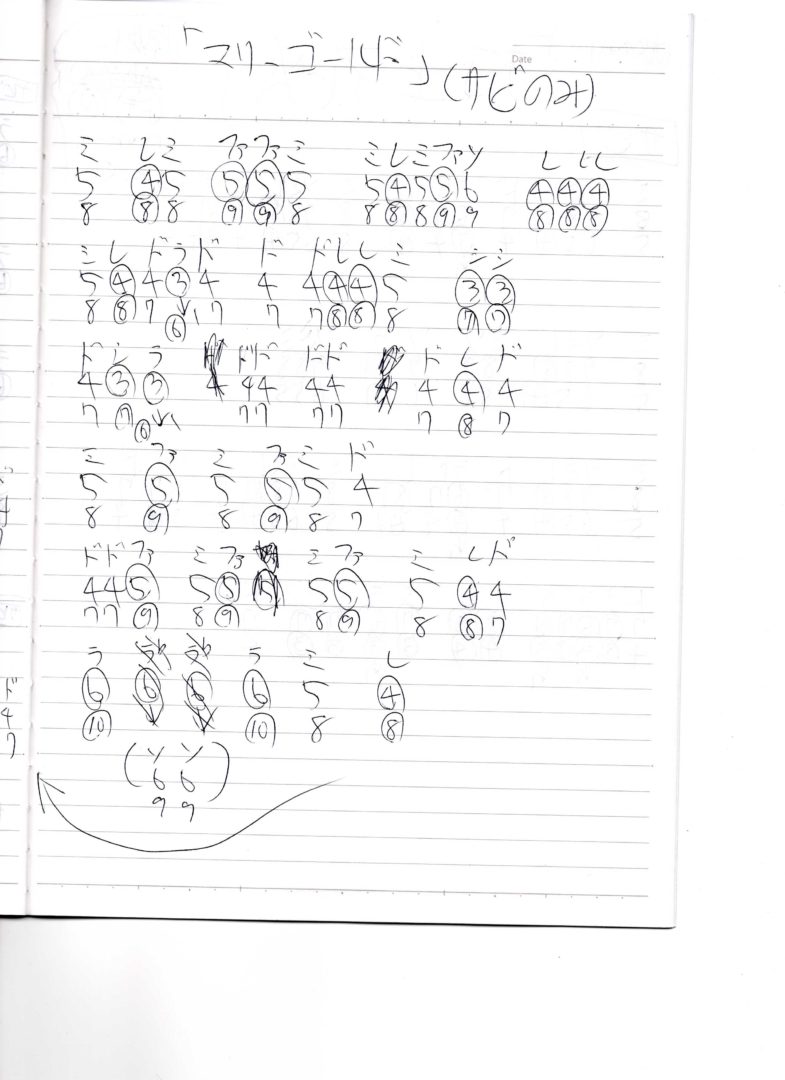 「マリーゴールド」(サビのみ)
Date
ミ レミ ファファミ ミレミファソ レ レレ
5 ④5 ⑤⑤5 5④5⑤6 ④④④
8 ⑧8 ⑨⑨8 8⑧8⑨9 ⑧⑧⑧
ミレドラド ド ドレレミ シシ
5④4③4 4 4④④5 ③③
8⑧7↓7 7 7⑧⑧8 ⑦⑦
⑥
ドシラ ドド ドド ドレド
4③③ 44 44 4④4
7⑦↓ 77 77 7⑧7
⑥
ミ ファ ミ ファミド
5 ⑤ 5 ⑤54
8 ⑨ 8 ⑨87
ドドファ ミファ ミファ ミ レド
44⑤ 5⑤ 5⑤ 5 ④4
77⑨ 8⑨ 8⑨ 8 ⑧7
ラ ラ ミ レ
⑥ ⑥ ⑥ ⑥ 5 ④
⑩ ⑩ 8 ⑧
(ソソ)
66
99
ド
4
7